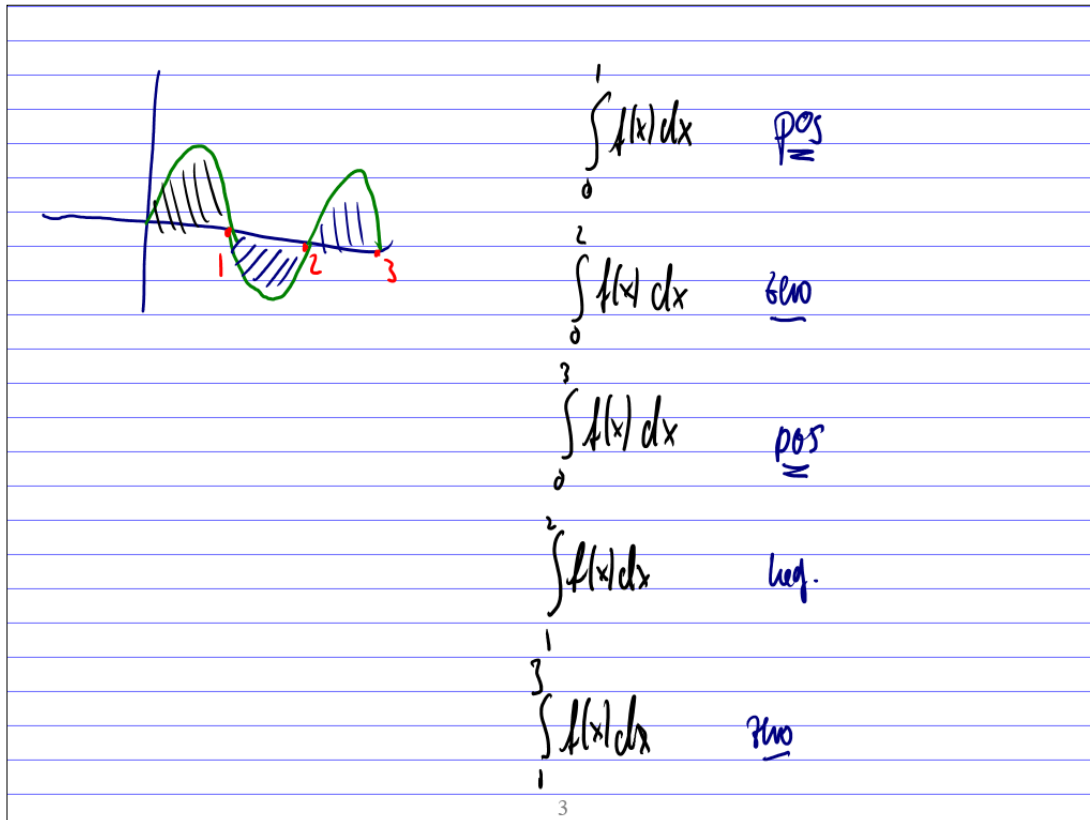 1 2 3
∫₀¹ f(x) dx pos
∫₀² f(x) dx zero
∫₀³ f(x) dx pos
∫₁² f(x) dx neg.
∫₁³ f(x) dx zero
3